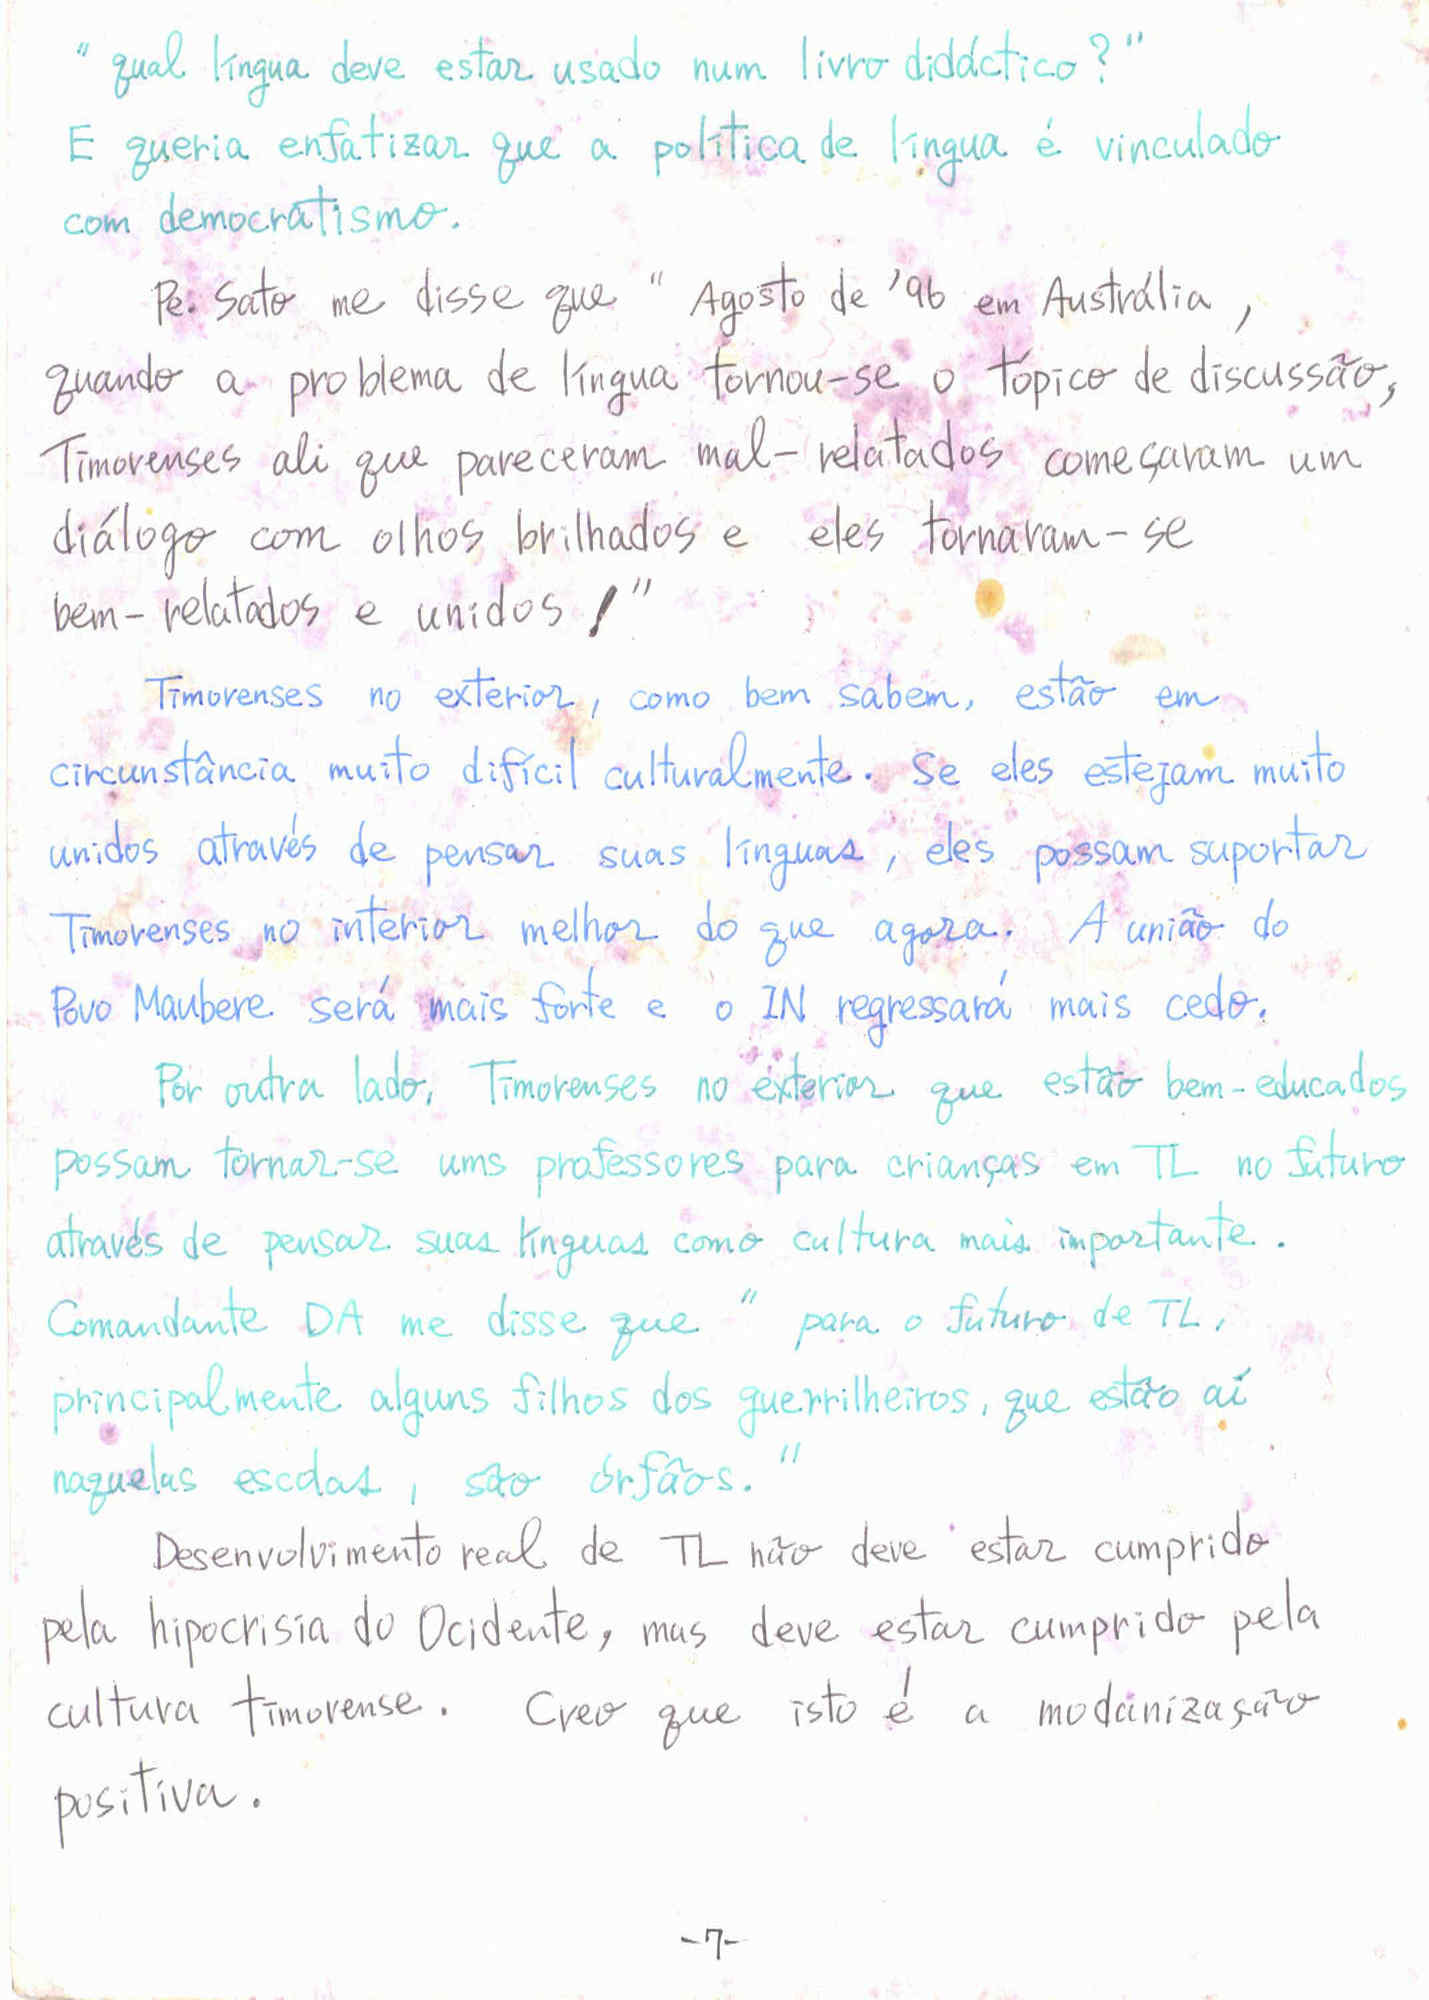 " qual língua deve estar usado num livro didáctico ? "
E queria enfatizar que a política de língua é vinculado
com democratismo.
Pe. Sato me disse que " Agosto de '96 em Austrália ,
quando a problema de língua tornou-se o tópico de discussão,
Timorenses ali que pareceram mal-relatados começaram um
diálogo com olhos brilhados e eles tornaram-se
bem-relatados e unidos ! "
Timorenses no exterior, como bem sabem, estão em
circunstância muito difícil culturalmente. Se eles estejam muito
unidos através de pensar suas línguas, eles possam suportar
Timorenses no interior melhor do que agora. A união do
Povo Maubere será mais forte e o IN regressará mais cedo.
Por outra lado, Timorenses no exterior que estão bem-educados
possam tornar-se ums professores para crianças em TL no futuro
através de pensar suas línguas como cultura mais importante.
Comandante DA me disse que " para o futuro de TL,
principalmente alguns filhos dos guerrilheiros, que estão aí
naquelas escolas, são órfãos. "
Desenvolvimento real de TL não deve estar cumprido
pela hipocrisía do Ocidente, mas deve estar cumprido pela
cultura timorense. Creo que isto é a modanização
positiva.
-7-